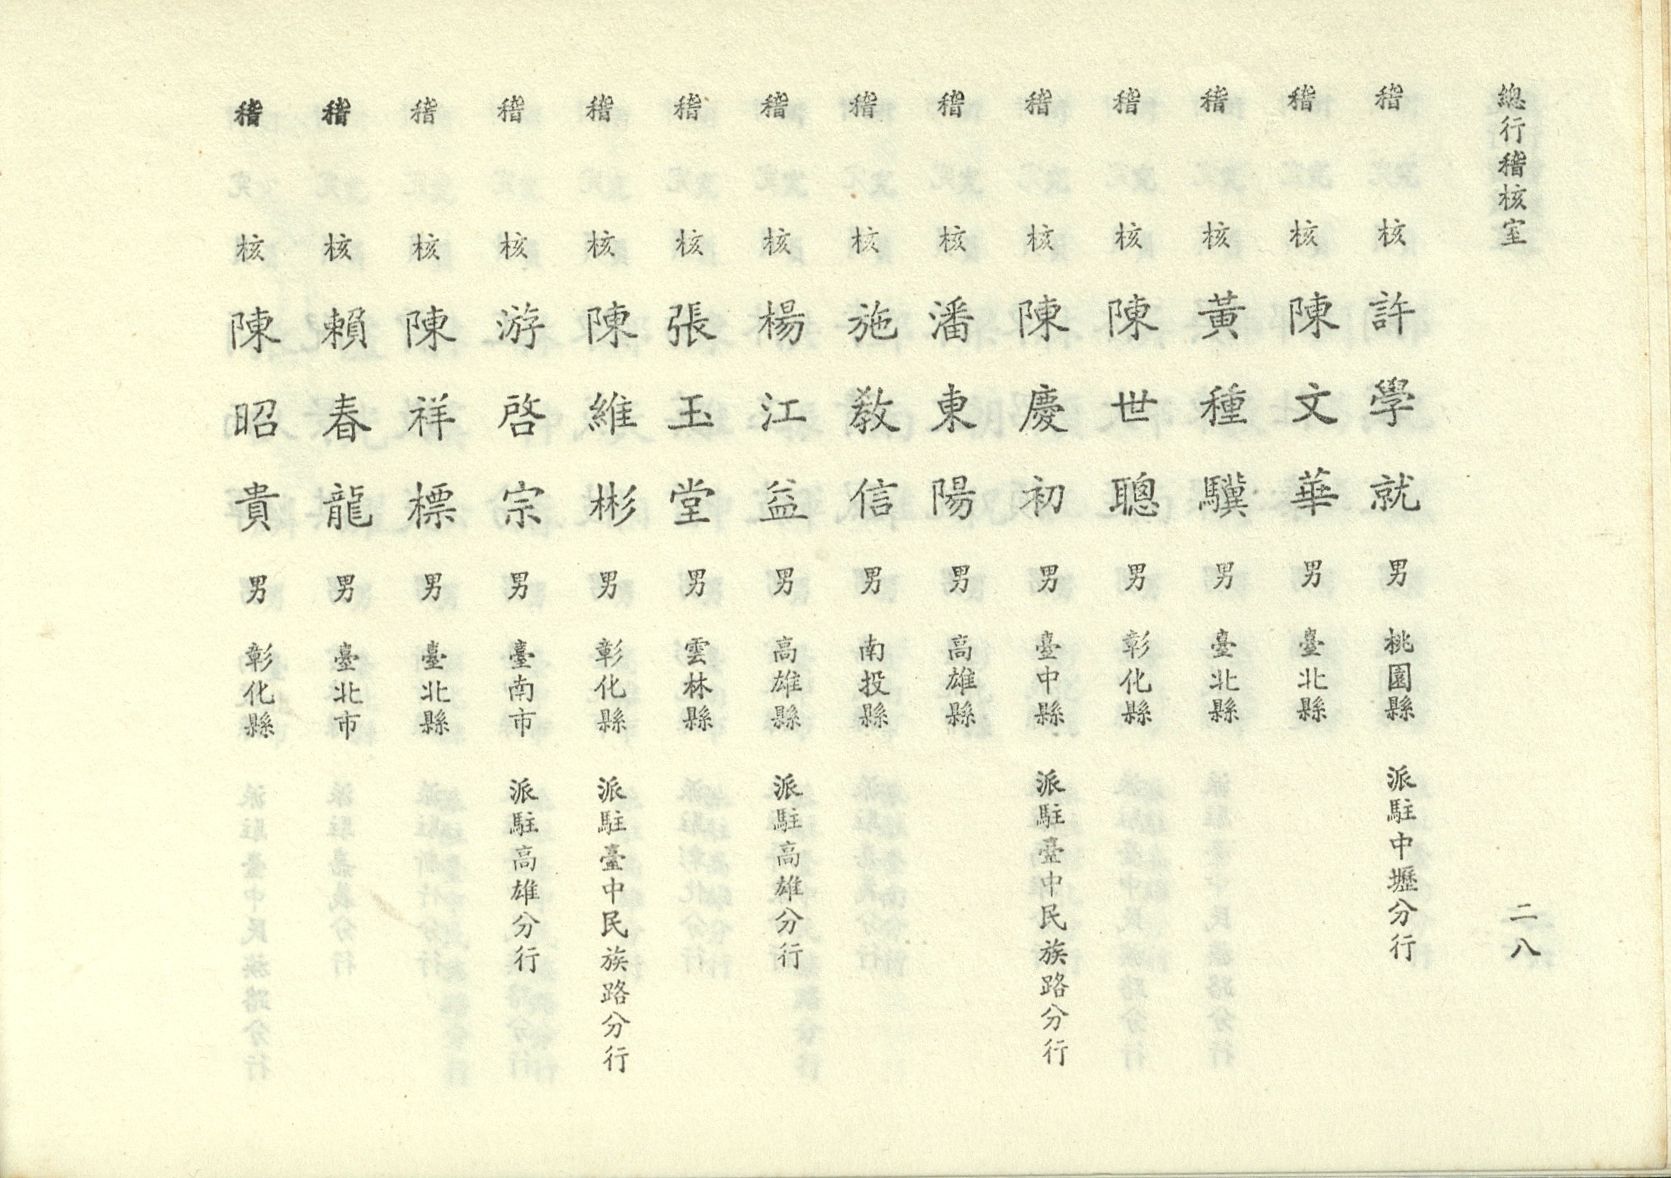 總行稽核室 二八
稽核 許學就 男 桃園縣 派駐中壢分行
稽核 陳文華 男 臺北縣
稽核 黃種驥 男 臺北縣
稽核 陳世聰 男 彰化縣
稽核 陳慶初 男 臺中縣 派駐臺中民族路分行
稽核 潘東陽 男 高雄縣
稽核 施教信 男 南投縣
稽核 楊江益 男 高雄縣 派駐高雄分行
稽核 張玉堂 男 雲林縣
稽核 陳維彬 男 彰化縣 派駐臺中民族路分行
稽核 游啓宗 男 臺南市 派駐高雄分行
稽核 陳祥標 男 臺北縣
稽核 賴春龍 男 臺北市
稽核 陳昭貴 男 彰化縣